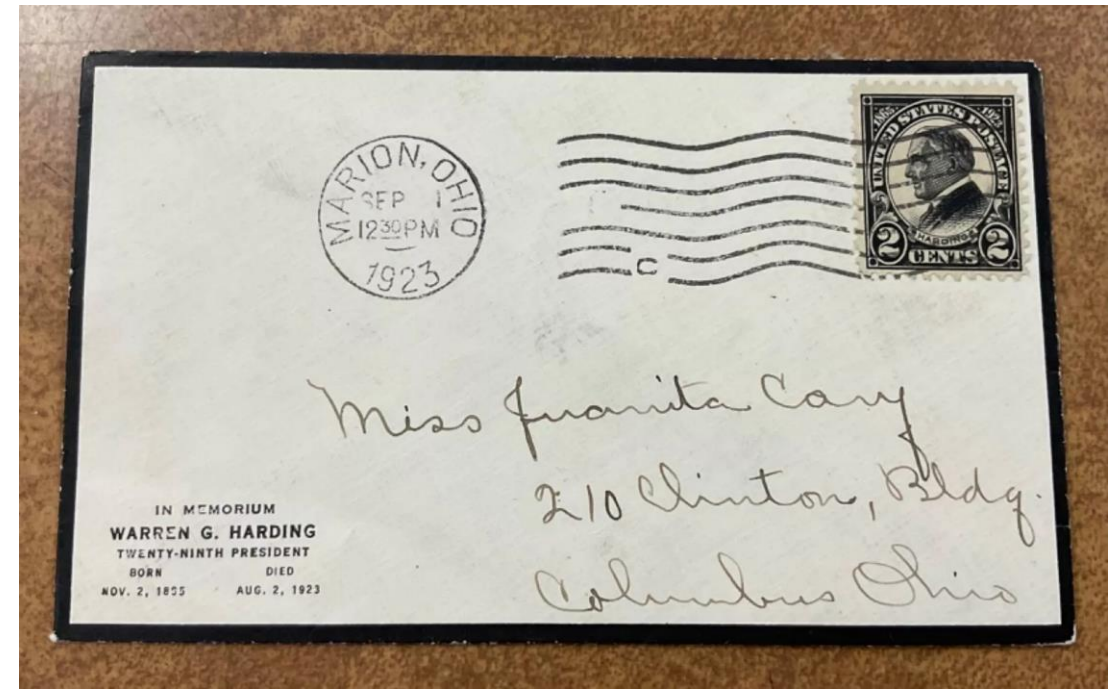 MARION, OHIO
SEP 1
12 30 PM
1923
C
1865 1923
UNITED STATES POSTAGE
HARDING
2 CENTS 2
Miss Juanita Cary
210 Clinton, Bldg.
Columbus Ohio
IN MEMORIUM
WARREN G. HARDING
TWENTY-NINTH PRESIDENT
BORN DIED
NOV. 2, 1865 AUG. 2, 1923